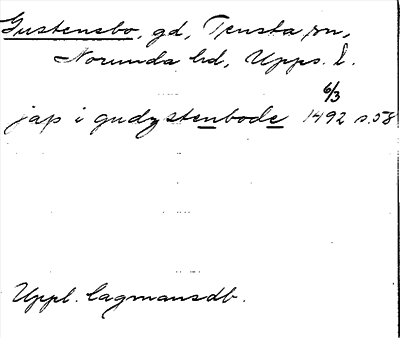 Gustensbo, gd, Tensta sn,
Norunda hd, Upps. l.
jap i gudzstenbode 6/3 1492 s. 58
Uppl. lagmansdb.